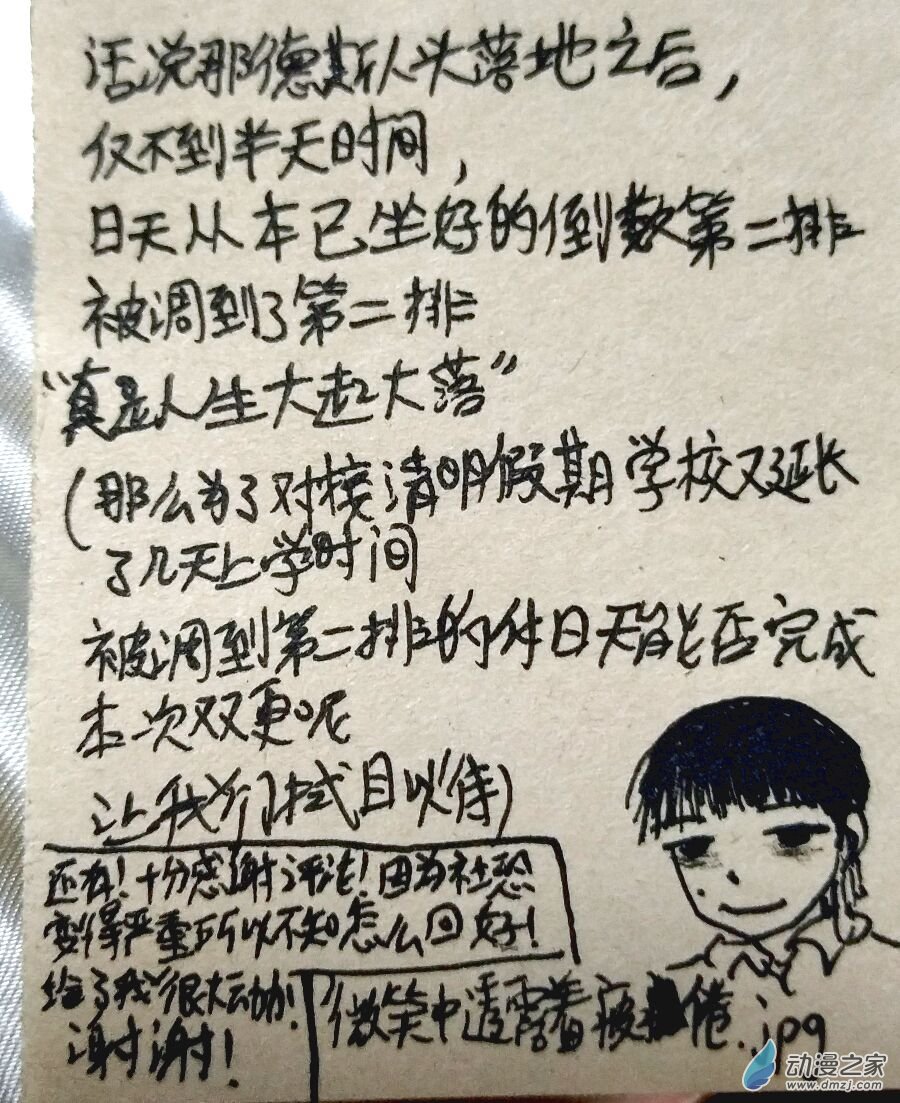 话说那德斯人头落地之后，
仅不到半天时间，
日天从本已坐好的倒数第二排
被调到了第二排
“真是人生大起大落”
（那么为了对接清明假期学校又延长
了几天上学时间
被调到第二排的休日天能否完成
本次双更呢
让我们拭目以待）
还有！十分感谢评论！因为社恐
变得严重所以不知怎么回好！
给了我很大动力！
谢谢！
微笑中透露着疲倦.jpg
动漫之家
www.dmzj.com